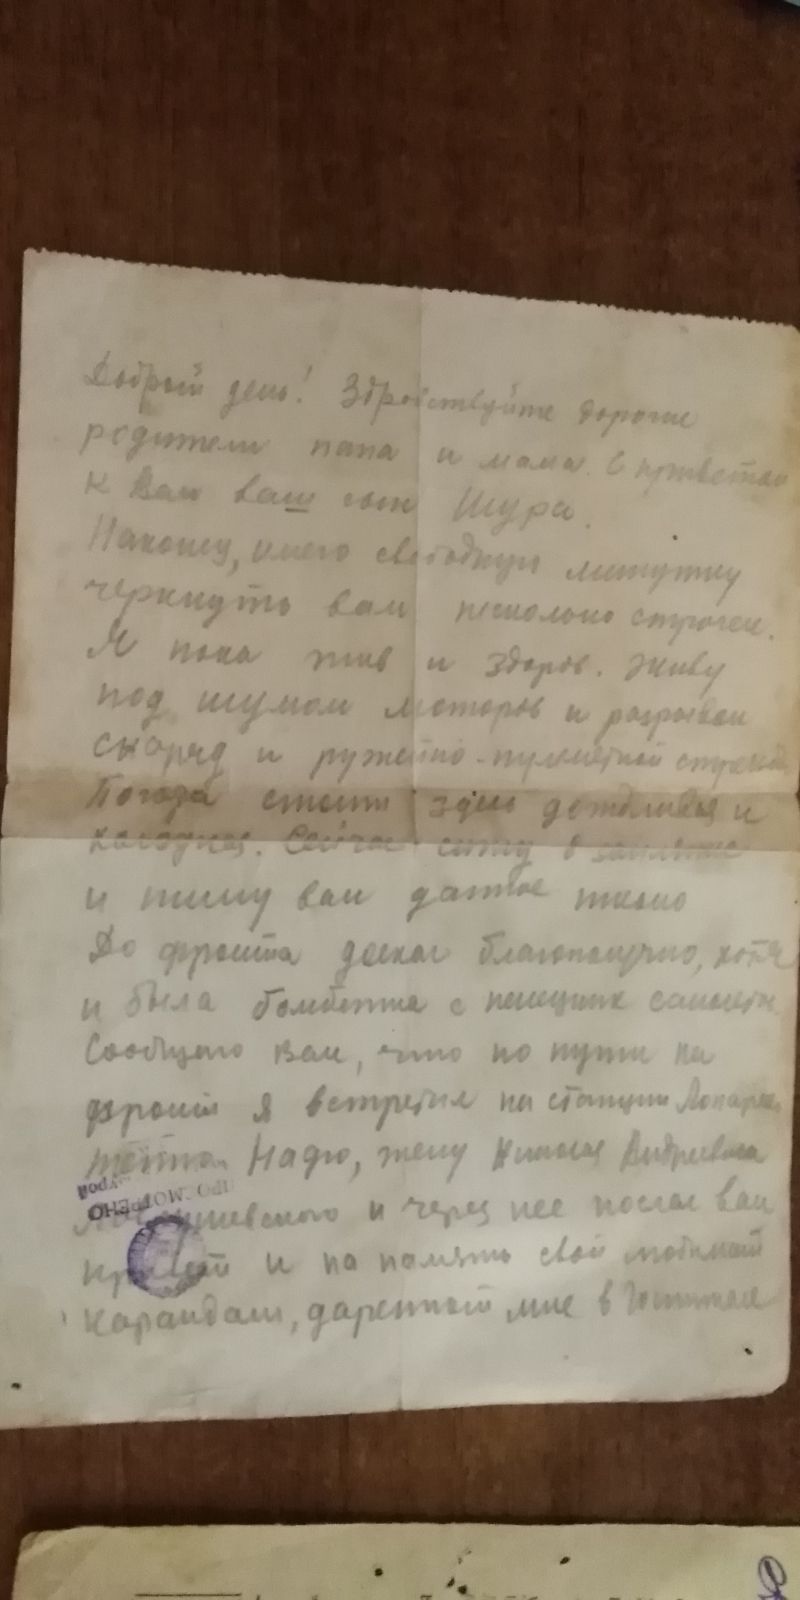 Добрый день! Здравствуйте дорогие
родители папа и мама. С приветом
к Вам ваш сын Шура.
Наконец, имею свободную минутку
черкнуть вам несколько строчек.
Я пока жив и здоров. Живу
под шумом моторов и разрывом
снаряд и ружейно-пулеметной
Погода стоит здесь дождливая и
холодная. Сейчас сижу в землянке
и пишу вам данное письмо
До фронта доехал благополучно, хотя
и была бомбежка с немецких самолетов.
Сообщаю Вам, что по пути на
фронт я встретил на станции
Надю, жену Андреевича
и через нее послал вам
привет и на память свой любимый
карандаш, даренный мне в Госпитале
ПРОСМОТРЕНО